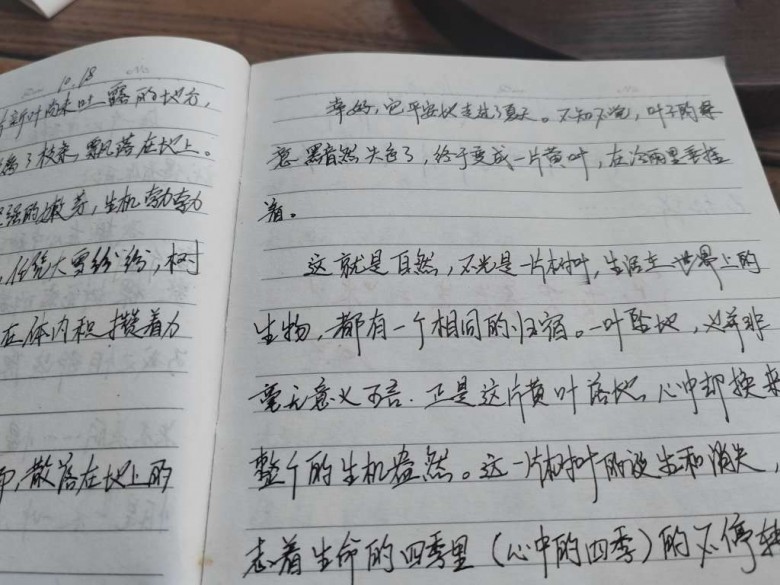 10.18
新叶尚未吐露的地方,
了枝条,飘落在地上。
强的嫩芽,生机勃勃
,任凭大雪纷纷,树
在体内积攒着力
,散落在地上的
幸好,它平安地走过了夏天。不知不觉,叶子的绿
意黯然失色了,终于变成一片黄叶,在冷雨里垂挂
着。
这就是自然,不光是一片树叶,生活在世界上的
生物,都有一个相同的归宿。一叶坠地,并非
毫无意义可言.正是这片黄叶落地,心中却换来
整个的生机盎然。这一片树叶的诞生和消失,
志着生命的四季里(心中的四季)的不停转